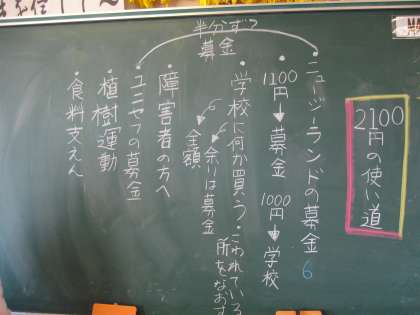 2100円の使い道
・ニュージーランドの募金 6
半分ずつ募金
・1100円→募金 1000円→学校
・学校に何か買う・こわれている所をなおす
余りは募金
全額
・障害者の方へ
・ユニセフの募金
・植樹運動
・食料支えん